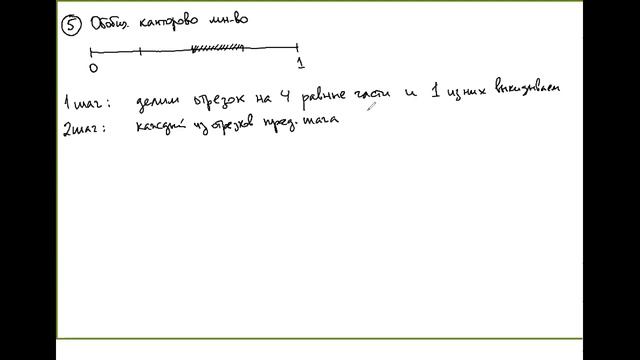 5 Обобщ. канторово мн-во
0 1
1 шаг: делим отрезок на 4 равные части и 1 из них выкидываем
2 шаг: каждый из отрезков пред. шага